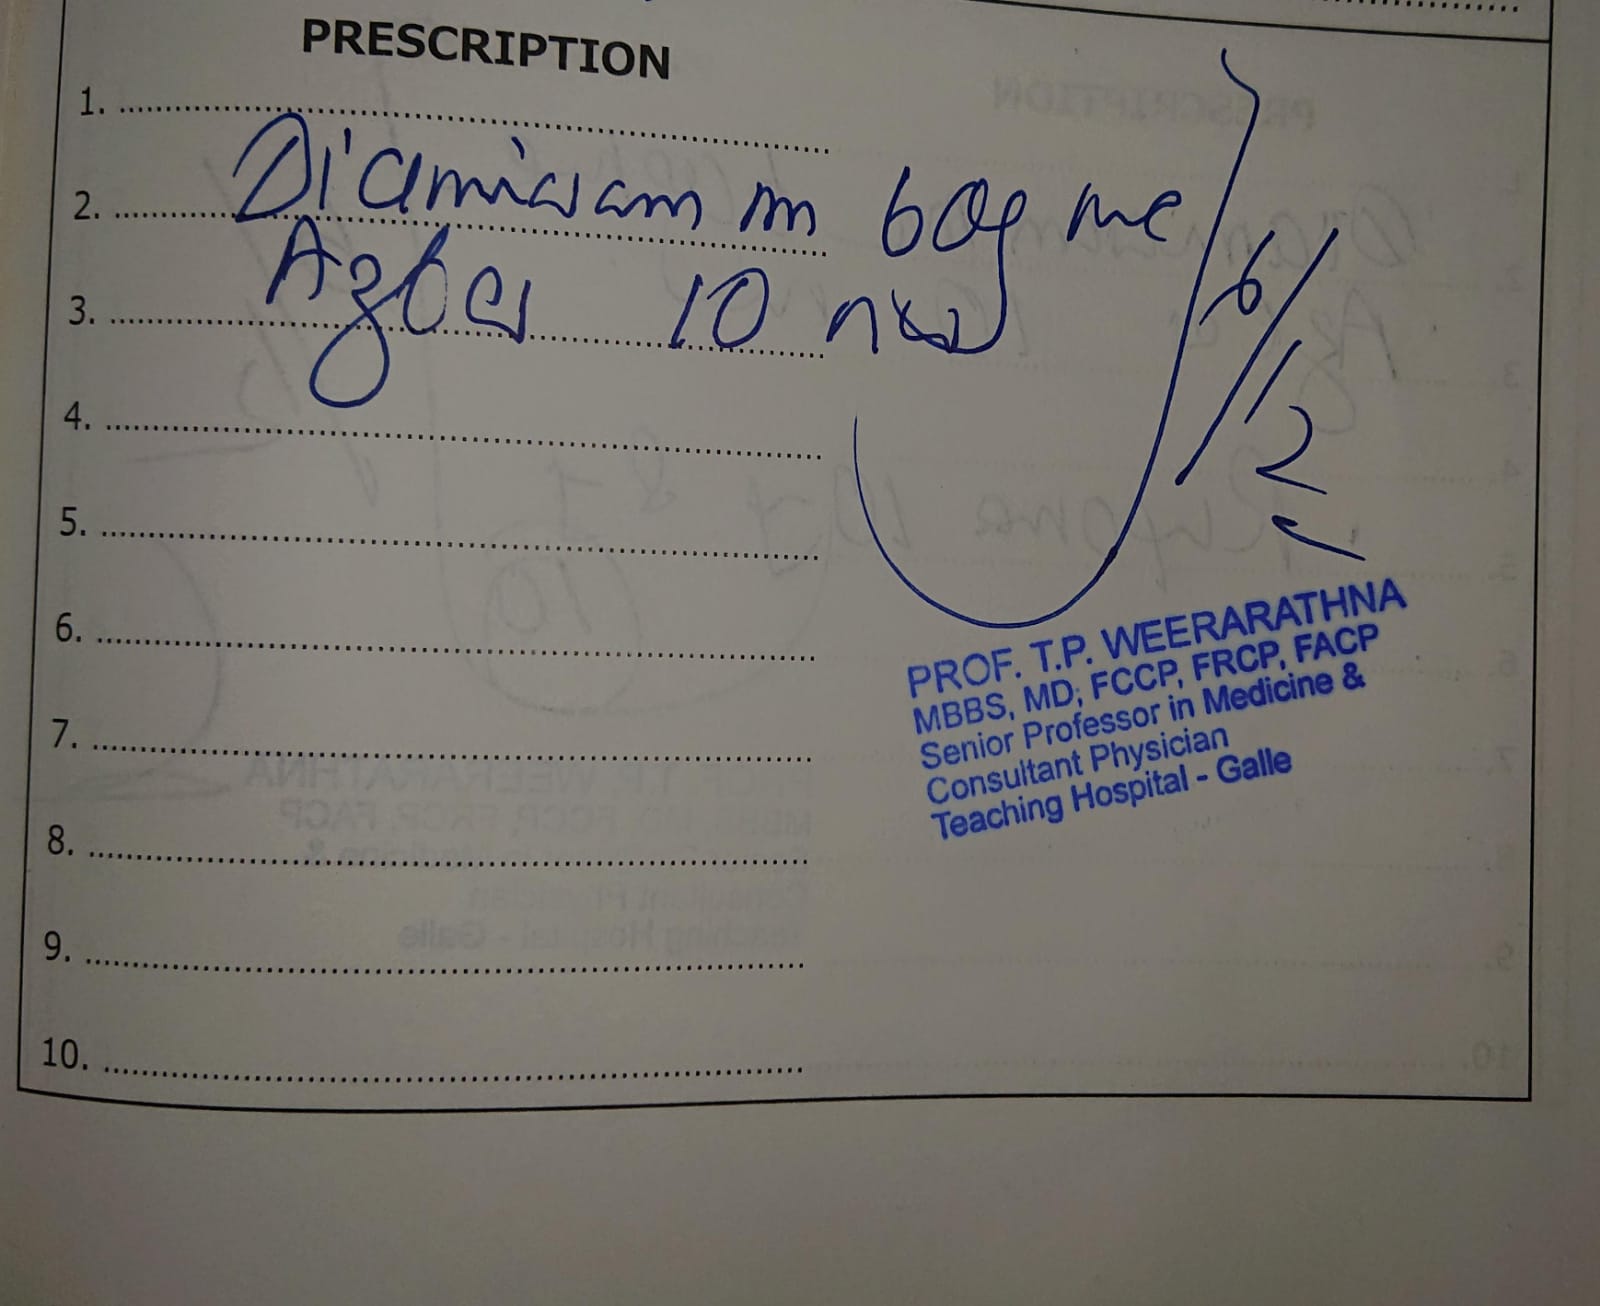 PRESCRIPTION
1.
2. Diamicron m 60g me
3. 10
4.
5.
6.
7.
8.
9.
10.
6/12
PROF. T.P. WEERARATHNA
MBBS, MD, FCCP, FRCP, FACP
Senior Professor in Medicine &
Consultant Physician
Teaching Hospital - Galle